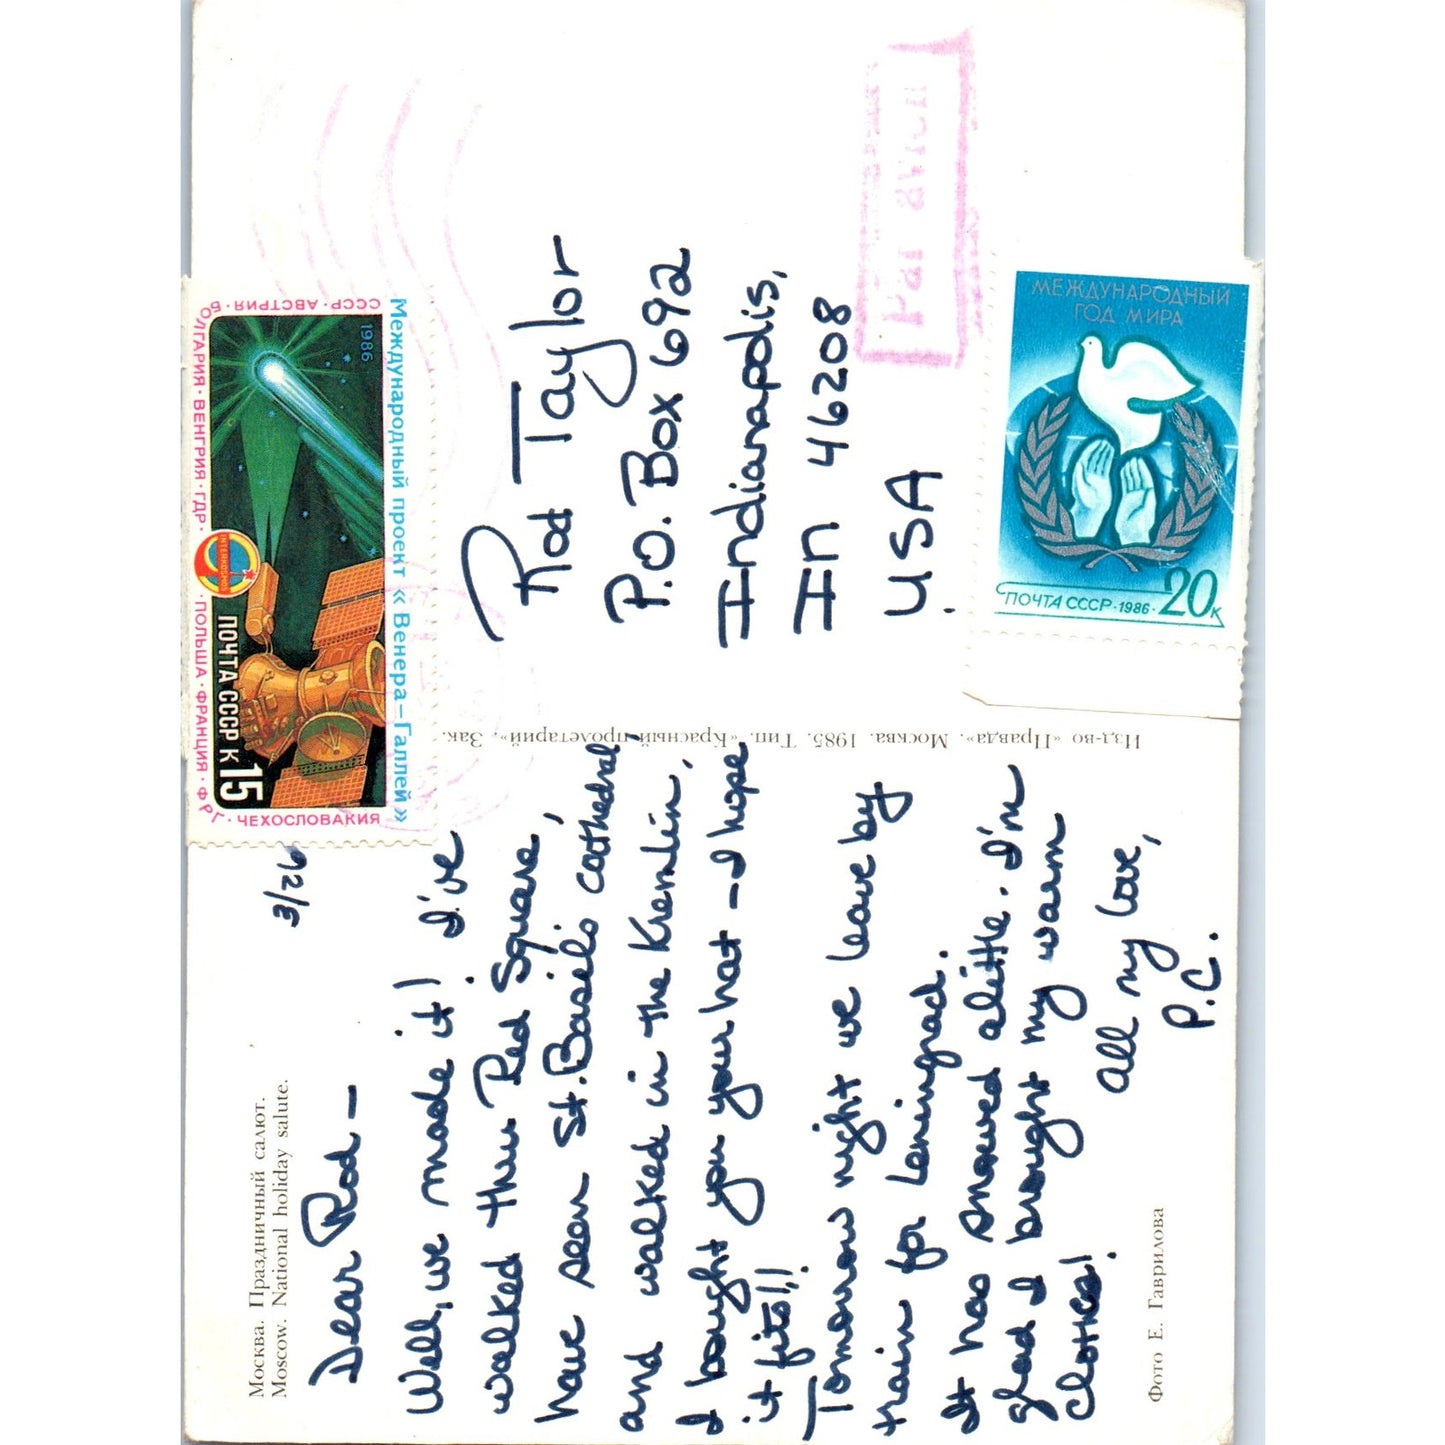 Москва. Праздничный салют.
Moscow. National holiday salute.
3/26
Dear Rod —
Well, we made it! I've
walked thru Red Square,
have seen St. Basil's cathedral
and walked in the Kremlin,
I bought you your hat — I hope
it fits!!!
Tomorrow night we leave by
train for Leningrad.
It has snowed a little. I'm
glad I brought my warm
clothes!
All my love,
P.C.
Фото Е. Гаврилова
Изд-во «Правда». Москва. 1985. Тип. «Красный пролетарий». Зак.
СССР·АВСТРИЯ·БОЛГАРИЯ·ВЕНГРИЯ·ГДР·ПОЛЬША·ФРАНЦИЯ·ФРГ·ЧЕХОСЛОВАКИЯ
1986
ПОЧТА СССР К 15
Международный проект «Венера–Галлей»
Rod Taylor
P.O. Box 692
Indianapolis,
In 46208
USA
PAR AVION
МЕЖДУНАРОДНЫЙ
ГОД МИРА
ПОЧТА СССР·1986· 20к